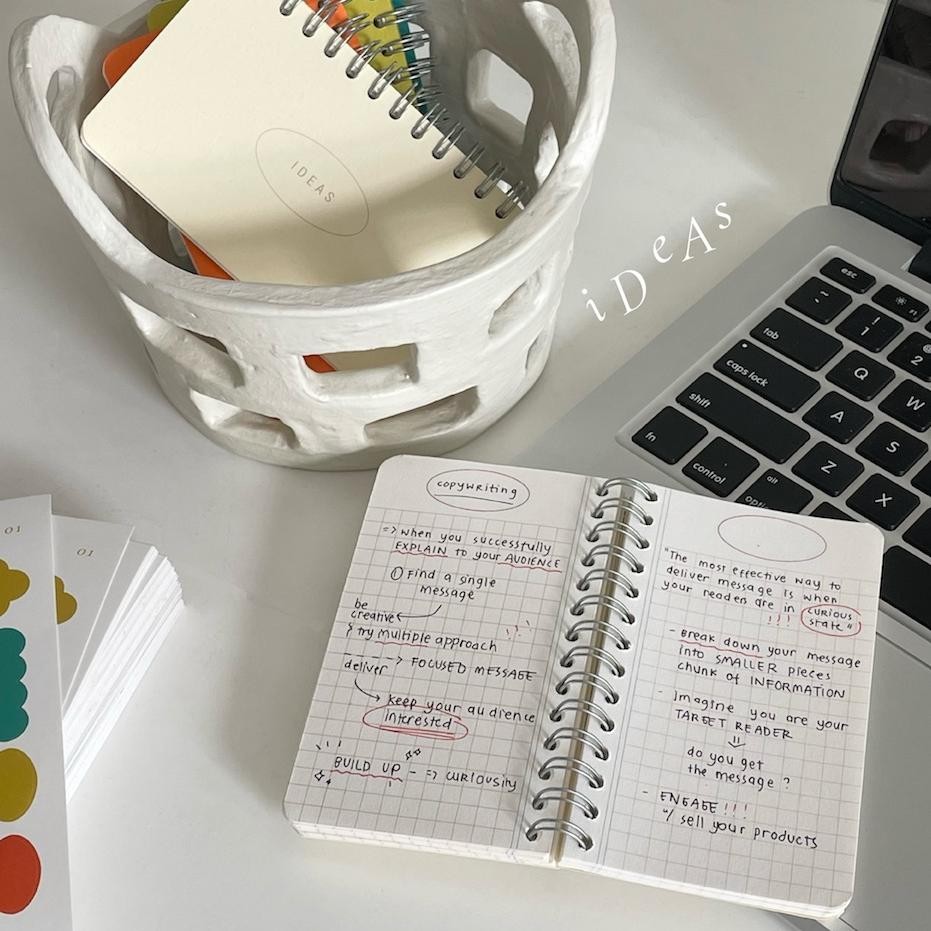 IDEAS
iDeAs
01
01
esc
tab
caps lock
shift
fn
control
alt
~
!
1
2
Q
W
A
S
Z
X
copywriting
=> when you successfully
EXPLAIN to your AUDIENCE
① Find a single
message
be
creative
& try multiple approach
!!!
----> FOCUSED MESSAGE
deliver
keep your audience
interested
BUILD UP - => curiousity
"The most effective way to
deliver message is when
your readers are in curious
!!! state"
- Break down your message
into SMALLER pieces
chunk of INFORMATION
- Imagine you are your
TARGET READER
do you get
the message ?
- ENGAGE!!!
w/ sell your products